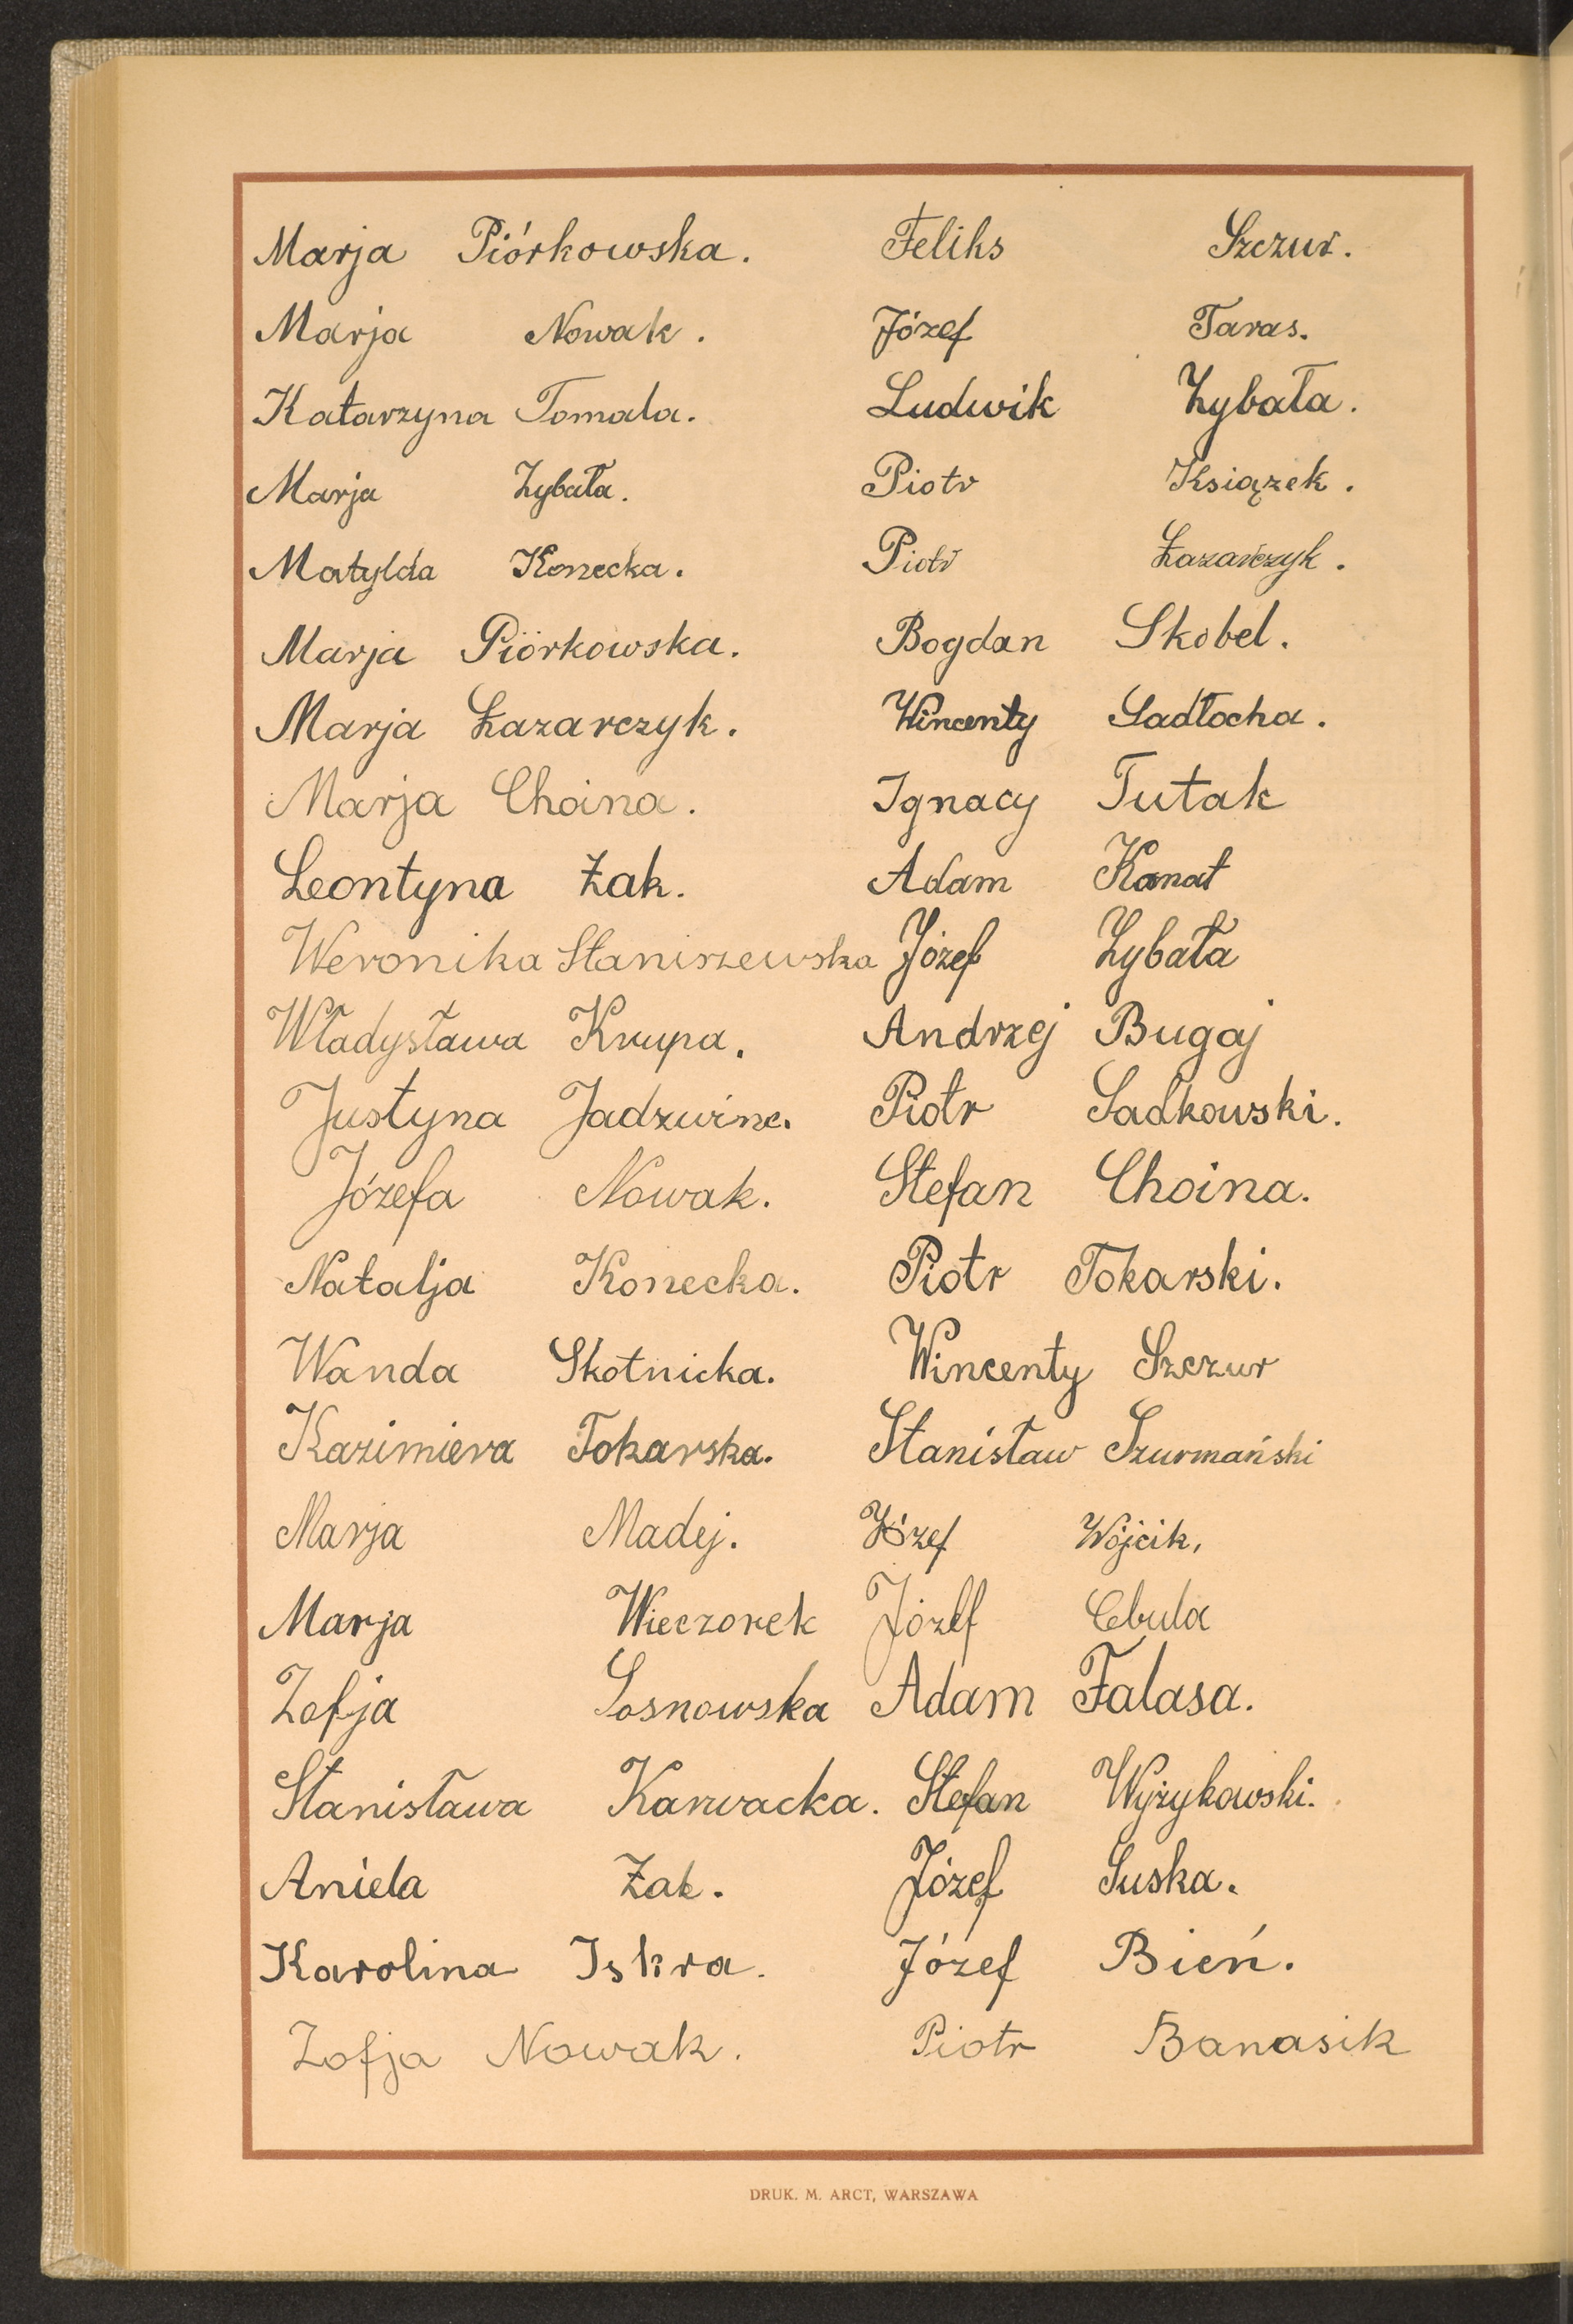 Marja Piórkowska. Feliks Szczur.
Marja Nowak. Józef Taras.
Katarzyna Tomala. Ludwik Zybała.
Marja Zybała. Piotr Książek.
Matylda Konecka. Piotr Łazarczyk.
Marja Piórkowska. Bogdan Skobel.
Marja Łazarczyk. Wincenty Sadłocha.
Marja Choina. Ignacy Tutak
Leontyna Żak. Adam Kanat
Weronika Staniszewska Józef Zybała
Władysława Krupa. Andrzej Bugaj
Justyna Jadzwinc. Piotr Sadkowski.
Józefa Nowak. Stefan Choina.
Natalja Konecka. Piotr Tokarski.
Wanda Skotnicka. Wincenty Szczur
Kazimiera Tokarska. Stanisław Szurmański
Marja Madej. Józef Wójcik,
Marja Wieczorek Józef Cebula
Zofja Sosnowska Adam Falasa.
Stanisława Karwacka. Stefan Wyżykowski.
Aniela Żak. Józef Suska.
Karolina Iskra. Józef Bień.
Zofja Nowak. Piotr Banasik
DRUK. M. ARCT, WARSZAWA